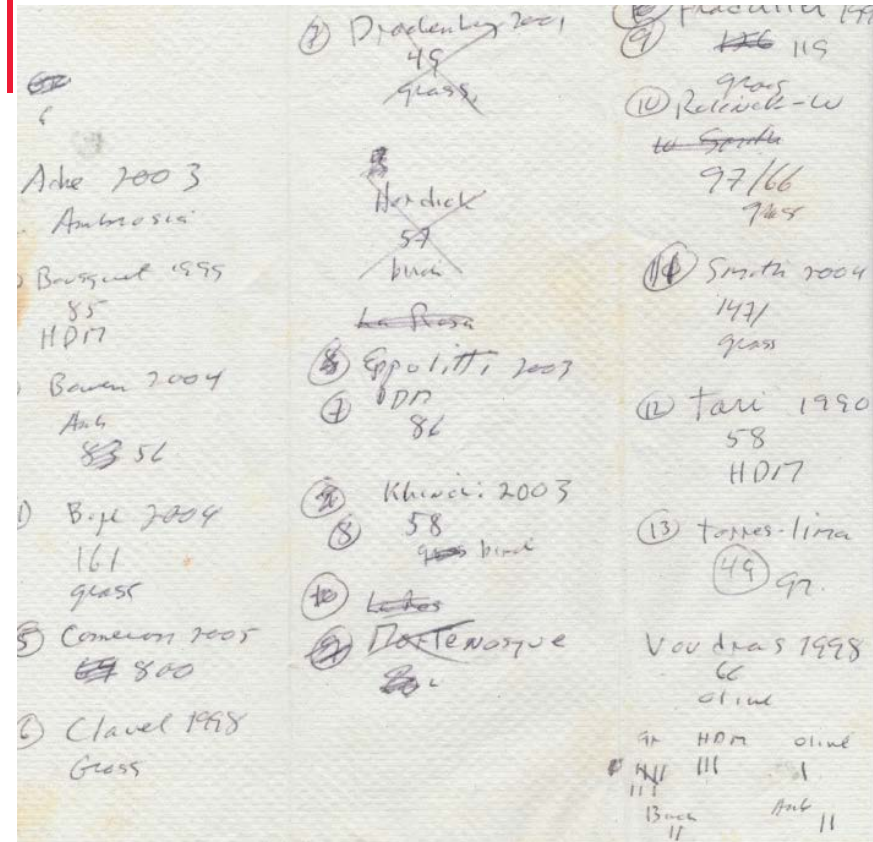 6
Ache 2003
Ambrosia
Bousquet 1999
85
HDM
Bowen 2004
Amb
83 56
Boyle 2004
161
grass
5 Cameron 2005
800
6 Clavel 1998
Grass
7 2001
49
grass
Nordick
57
birch
La Rosa
8 Eppolitti 2003
7 DM
86
Khinchi 2003
8 58
grass birch
10
Mortemosque
9 126 119
grass
10 Relcinck-w
to Smith
97/66
grass
11 Smith 2004
147/
grass
12 Tari 1990
58
HDM
13 torres-lima
49 gr.
Voudras 1998
66
olive
gr HDM olive
|||| ||| |
|||
Birch Amb
|| ||